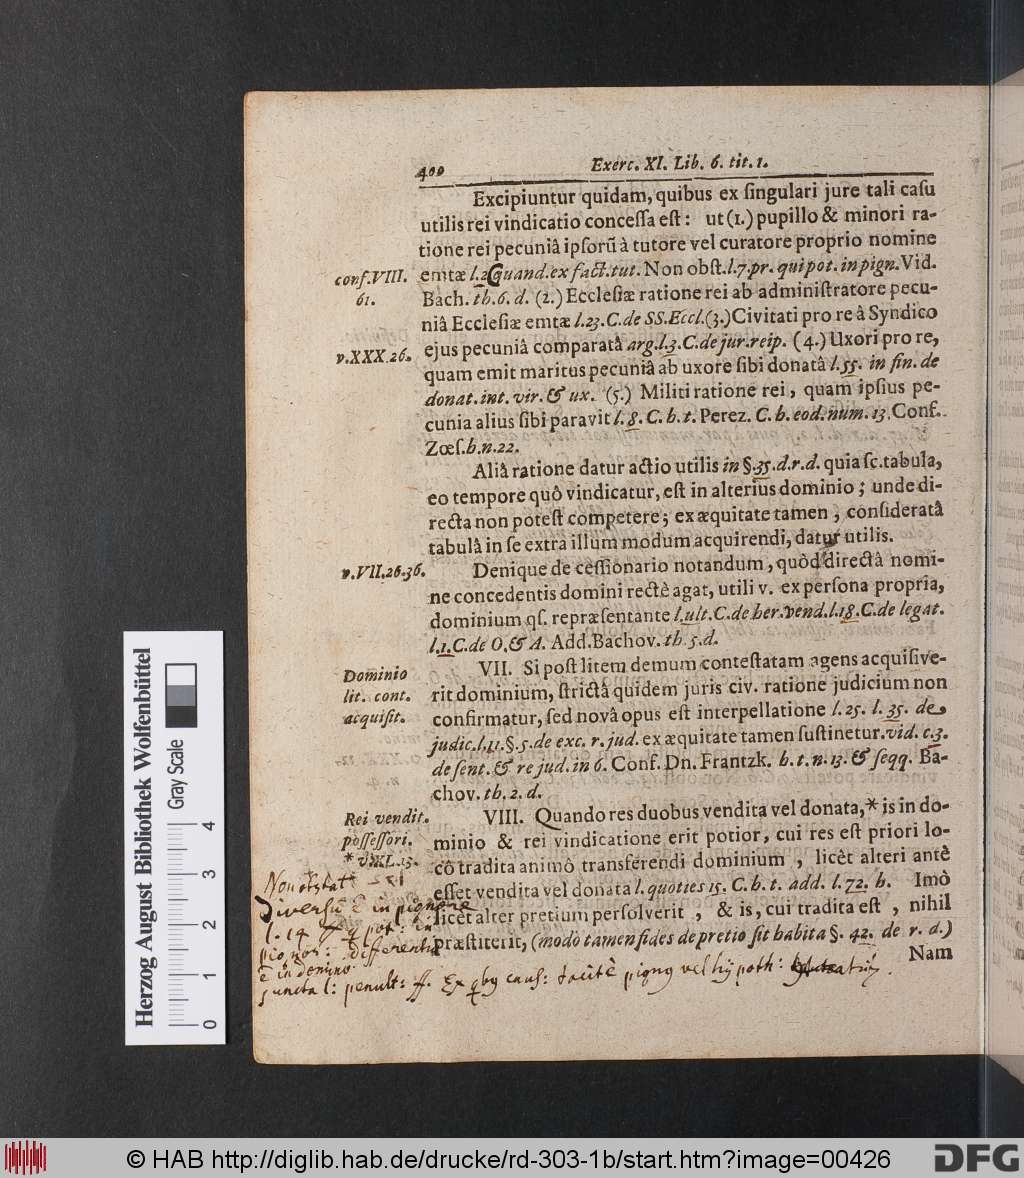 400
Exerc. XI. Lib. 6. tit. 1.
Excipiuntur quidam, quibus ex ſingulari jure tali caſu
utilis rei vindicatio conceſſa eſt: ut (1.) pupillo & minori ra-
tione rei pecuniâ ipſorũ à tutore vel curatore proprio nomine
conf. VIII.
61.
emtæ l. 2. C quand. ex fact. tut. Non obſt. l. 7. pr. qui pot. in pign. Vid.
Bach. th. 6. d. (2.) Eccleſiæ ratione rei ab adminiſtratore pecu-
niâ Eccleſiæ emtæ l. 23. C. de SS. Eccl. (3.) Civitati pro re â Syndico
v. XXX. 26.
ejus pecuniâ comparatâ arg. l. 3. C. de jur. reip. (4.) Uxori pro re,
quam emit maritus pecuniâ ab uxore ſibi donatâ l. 55. in fin. de
donat. int. vir. & ux. (5.) Militi ratione rei, quam ipſius pe-
cunia alius ſibi paravit l. 8. C. h. t. Perez. C. h. eod. num. 13. Conf.
Zœſ. h. n. 22.
Aliâ ratione datur actio utilis in §. 35. d. r. d. quia ſc. tabula,
eo tempore quô vindicatur, eſt in alterius dominio; unde di-
recta non poteſt competere; ex æquitate tamen, conſideratâ
tabulâ in ſe extra illum modum acquirendi, datur utilis.
v. VII. 26. 36.
Denique de ceſſionario notandum, quòd directâ nomi-
ne concedentis domini rectè agat, utili v. ex perſona propria,
dominium qſ. repræſentante l. ult. C. de her. vend. l. 18. C. de legat.
l. 1. C. de O. & A. Add. Bachov. th. 5. d.
Dominio
lit. cont.
acquiſit.
VII. Si poſt litem demum conteſtatam agens acquiſive-
rit dominium, ſtrictâ quidem juris civ. ratione judicium non
confirmatur, ſed novâ opus eſt interpellatione l. 25. l. 35. de
judic. l. 11. §. 5. de exc. r. jud. ex æquitate tamen ſuſtinetur. vid. c. 3.
de ſent. & re jud. in 6. Conf. Dn. Frantzk. h. t. n. 13. & ſeqq. Ba-
chov. th. 2. d.
Rei vendit.
poſſeſſori.
* v. XL. 15.
VIII. Quando res duobus vendita vel donata, * is in do-
minio & rei vindicatione erit potior, cui res eſt priori lo-
cô tradita animô transferendi dominium, licèt alteri antè
eſſet vendita vel donata l. quoties 15. C. h. t. add. l. 72. h. Imò
licèt alter pretium perſolverit, & is, cui tradita eſt, nihil
præſtiterit, (modò tamen fides de pretio ſit habita §. 42. de r. d.)
Nam
Non obstat
Diversũ ẽ in pignore
l. 14 ff q pot: in
pignor: differentia
ẽ in domino
juncta l: penult: ff. Ex qby caus: tacitè pigny vel hypoth:
Herzog August Bibliothek Wolfenbüttel
Gray Scale
0 1 2 3 4
© HAB http://diglib.hab.de/drucke/rd-303-1b/start.htm?image=00426
DFG